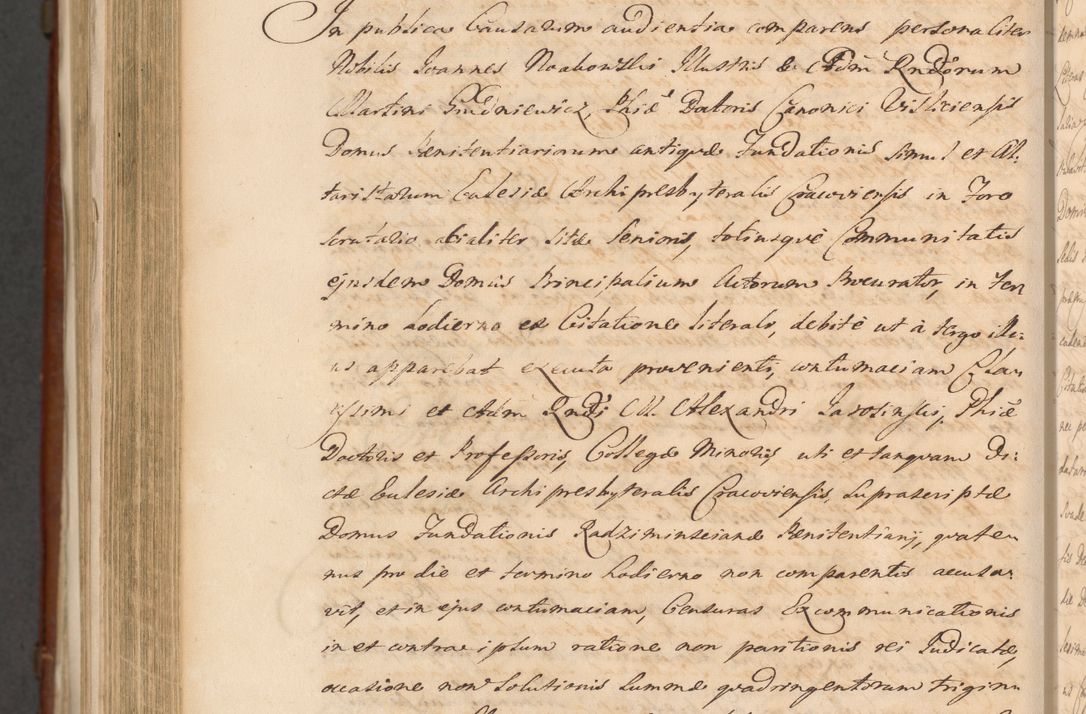 In publica Causarum audientia comparens personaliter
Nobilis Joannes Noakowski Illustris & Adm Rndorum
Martini Grudniewicz, Phiæ Doctoris Canonici Visliciensis
Domus Pænitentiariorum antiquæ Fundationis simul et Al:
taristarum Ecclesiæ Archipresbyteralis Cracoviensis in Foro
scrutario alialiter sitæ Senioris, totiusque Communitatis
ejusdem Domus Principalium Actorum Procurator, in ter
mino hodierno ex Citatione literali, debitè ut à tergo illi:
us apparebat executa provenienti, contumaciam Clar
issimi et Adm Rndi M. Alexandri Jarosinski, Phiæ
Doctoris et Professoris, Collegæ Minoris, uti et tanquam Di:
ctæ Ecclesiæ Archipresbyteralis Cracoviensis, suprascriptæ
Domus Fundationis Radziminscianæ Pænitentiarij, quate
nus pro die et termino hodierno non comparentis accusa:
vit, et in ejus contumaciam, Censuras Excommunicationis
in et contra ipsum ratione non paritionis rei Judicatæ,
occasione non solutionis summæ quadringentorum trigin